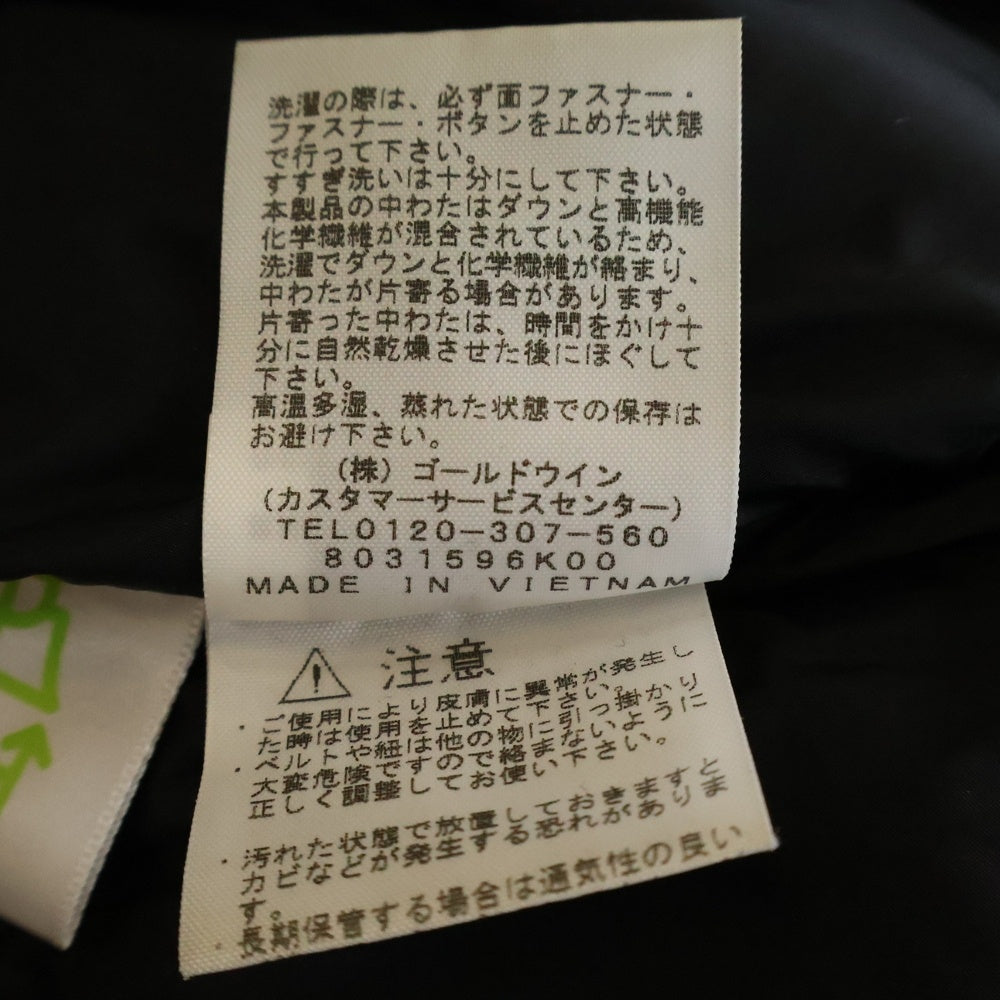 洗濯の際は、必ず面ファスナー・
ファスナー・ボタンを止めた状態
で行って下さい。
すすぎ洗いは十分にして下さい。
本製品の中わたはダウンと高機能
化学繊維が混合されているため、
洗濯でダウンと化学繊維が絡まり、
中わたが片寄る場合があります。
片寄った中わたは、時間をかけ十
分に自然乾燥させた後にほぐして
下さい。
高温多湿、蒸れた状態での保存は
お避け下さい。
(株)ゴールドウイン
(カスタマーサービスセンター)
TEL0120-307-560
8031596K00
MADE IN VIETNAM
注意
・ご使用により皮膚に異常が発生し
た時は使用を止めて下さい。
・ベルトや紐は他の物に引っ掛かり
大変危険ですので絡まないように
正しく調整してお使い下さい。
・汚れた状態で放置しておきますと
カビなどが発生する恐れがありま
す。
・長期保管する場合は通気性の良い